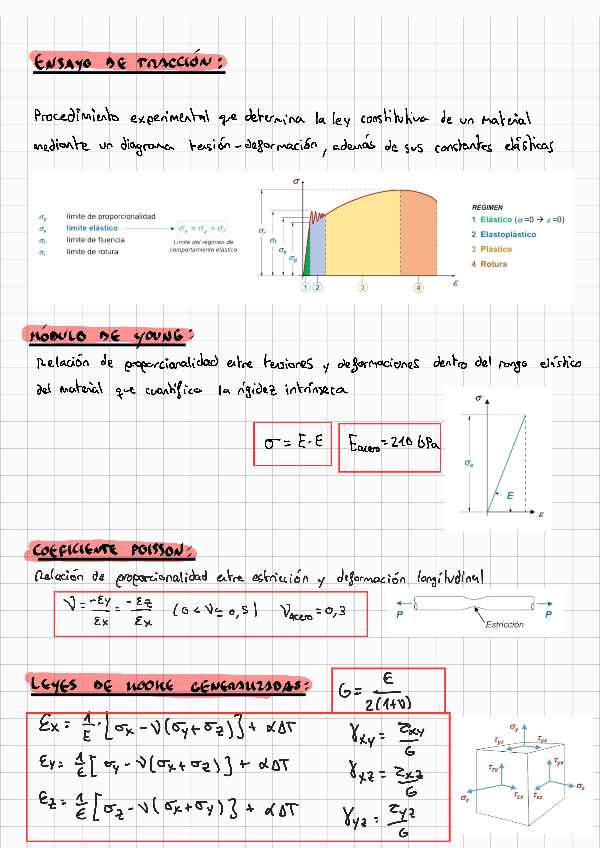 ENSAYO DE TRACCIÓN:
Procedimiento experimental que determina la ley constitutiva de un material
mediante un diagrama tensión-deformación, además de sus constantes elásticas
σp límite de proporcionalidad
σe límite elástico σe ≈ σp ≈ σf
σf límite de fluencia Límite del régimen de
σr límite de rotura comportamiento elástico
σ
σr
σf
σe
σp
1 2 3 4 ε
RÉGIMEN
1 Elástico (σ=0 → ε=0)
2 Elastoplástico
3 Plástico
4 Rotura
MÓDULO DE YOUNG:
Relación de proporcionalidad entre tensiones y deformaciones dentro del rango elástico
del material que cuantifica la rigidez intrínseca
σ = E·ε
Eacero = 210 GPa
σ
σe
E
ε
COEFICIENTE POISSON:
Relación de proporcionalidad entre estricción y deformación longitudinal
ν = -εy/εx = -εz/εx (0 < ν ≤ 0,5) νacero = 0,3
P P
Estricción
LEYES DE HOOKE GENERALIZADAS:
G = E/2(1+ν)
εx = 1/E · [σx - ν(σy + σz)] + αΔT
γxy = τxy/G
εy = 1/E [σy - ν(σx + σz)] + αΔT
γxz = τxz/G
εz = 1/E [σz - ν(σx + σy)] + αΔT
γyz = τyz/G
σy
τyz τyx
τxy τyx
σz σx
τzx τxz